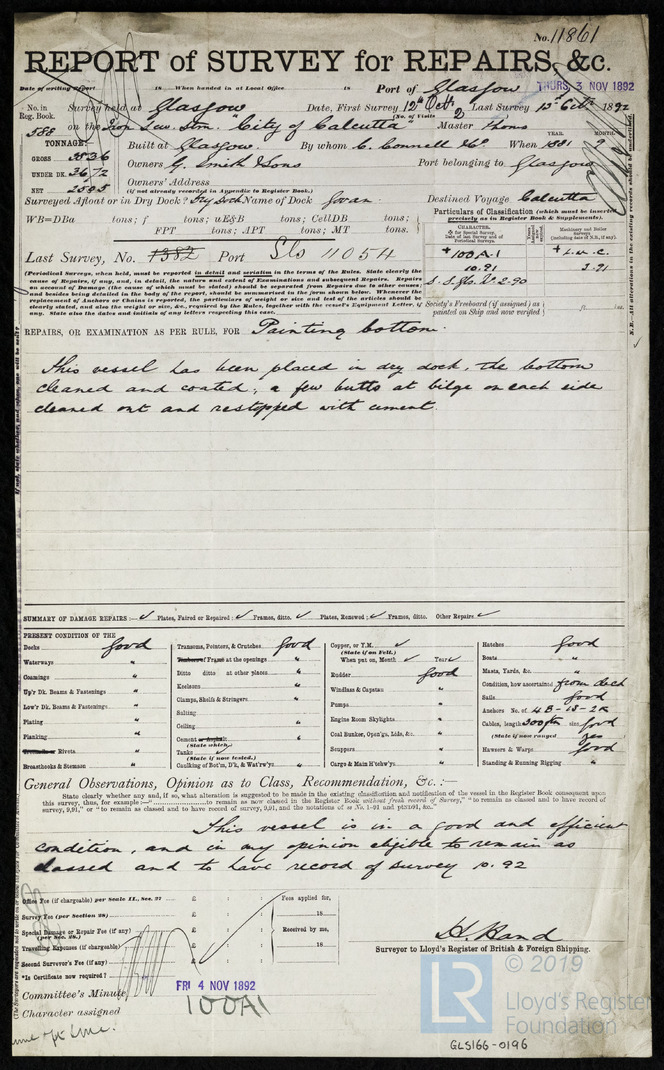 No. 11861
REPORT of SURVEY for REPAIRS, &c.
Date of writing Report 18 When handed in at Local Office 18 Port of Glasgow
THURS. 3 NOV 1892
No. in Reg. Book. Survey held at Glasgow Date, First Survey 12th Oct. Last Survey 13th Octr 1892
(No. of Visits 2
588 on the Iron Scw. Stm. "City of Calcutta" Master Thoms
TONNAGE: Built at Glasgow. By whom C. Connell & Co When 1881 9
YEAR. MONTH.
GROSS 3836 Owners G. Smith & Sons Port belonging to Glasgow
UNDER DK. 3672
NET 2505 Owners' Address
(if not already recorded in Appendix to Register Book.)
Surveyed Afloat or in Dry Dock? Dry Dock Name of Dock Govan. Destined Voyage Calcutta
WB=DBa tons; f tons; uE&B tons; CellDB tons;
FPT tons; APT tons; MT tons.
Particulars of Classification (which must be inserted precisely as in Register Book & Supplements).
CHARACTER.
Machinery and Boiler Surveys (including date of N.B., if any).
+ 100A1 + L.M.C.
10.91 3.91
Last Survey, No. 1382 Port Gls 11054
(Periodical Surveys, when held, must be reported in detail and seriatim in the terms of the Rules. State clearly the
cause of Repairs, if any, and, in detail, the nature and extent of Examinations and subsequent Repairs. Repairs
on account of Damage (the cause of which must be stated) should be separated from Repairs due to other causes;
and besides being detailed in the body of the report, should be summarised in the form shown below. Whenever the
replacement of Anchors or Chains is reported, the particulars of weight or size and test of the articles should be
clearly stated, and also the weight or size, &c., required by the Rules, together with the vessel's Equipment Letter, if
any. State also the dates and initials of any letters respecting this case.
Society's Freeboard (if assigned) as painted on Ship and now verified ft. ins.
N.B.—All alterations in the existing records should be underlined.
REPAIRS, OR EXAMINATION AS PER RULE, FOR Painting bottom.
This vessel has been placed in dry dock, the bottom
cleaned and coated; a few butts at bilge on each side
cleaned out and restopped with cement.
SUMMARY OF DAMAGE REPAIRS:— ✓ Plates, Faired or Repaired; ✓ Frames, ditto. ✓ Plates, Renewed; ✓ Frames, ditto. Other Repairs. ✓
PRESENT CONDITION OF THE
Decks Good
Waterways "
Coamings "
Up'r Dk. Beams & Fastenings "
Low'r Dk. Beams & Fastenings "
Plating "
Planking "
Rivets "
Breasthooks & Stemson "
Transoms, Pointers, & Crutches Good
Timbers of Frame at the openings "
Ditto ditto at other places "
Keelsons "
Clamps, Shelfs & Stringers "
Salting
Ceiling "
Cement or Asphalt "
(State which)
Tanks ✓
(State if now tested.)
Caulking of Bot'm, D'k, & Wat'rw'ys "
Copper, or Y.M. ✓
(State if on Felt.)
When put on, Month ✓ Year ✓
Rudder Good
Windlass & Capstan "
Pumps "
Engine Room Skylights "
Coal Bunker, Open'gs, Lids, &c. "
Scuppers "
Cargo & Main H'tchw'ys "
Hatches Good
Boats "
Masts, Yards, &c. "
Condition, how ascertained from deck
Sails Good
Anchors No. of 4B-1S-2K
Cables, length 300 fm size Good
(State if now ranged yes
Hawsers & Warps Good
Standing & Running Rigging "
General Observations, Opinion as to Class, Recommendation, &c.:—
State clearly whether any and, if so, what alteration is suggested to be made in the existing classification and notification of the vessel in the Register Book consequent upon
this survey, thus, for example:—"................to remain as now classed in the Register Book without fresh record of Survey," "to remain classed and to have record of
survey, 9,91," or "to remain as classed and to have record of survey, 9,91, and the notations of
This vessel is in a good and efficient
condition, and in my opinion eligible to remain as
classed and to have record of survey 10.92
Office Fee (if chargeable) per Scale II., Sec. 27 £ : :
Survey Fee (per Section 28) £ : :
Special Damage or Repair Fee (if any) £ : :
(per Sec. 28.)
Travelling Expenses (if chargeable) £ : :
Second Surveyor's Fee (if any) £ : :
Fees applied for,
18
Received by me,
18
H. Rand
Surveyor to Lloyd's Register of British & Foreign Shipping.
*Is Certificate now required?
Committee's Minute FRI 4 NOV 1892
Character assigned 100A1
LR © 2019
Lloyd's Register
Foundation
GLS166-0196